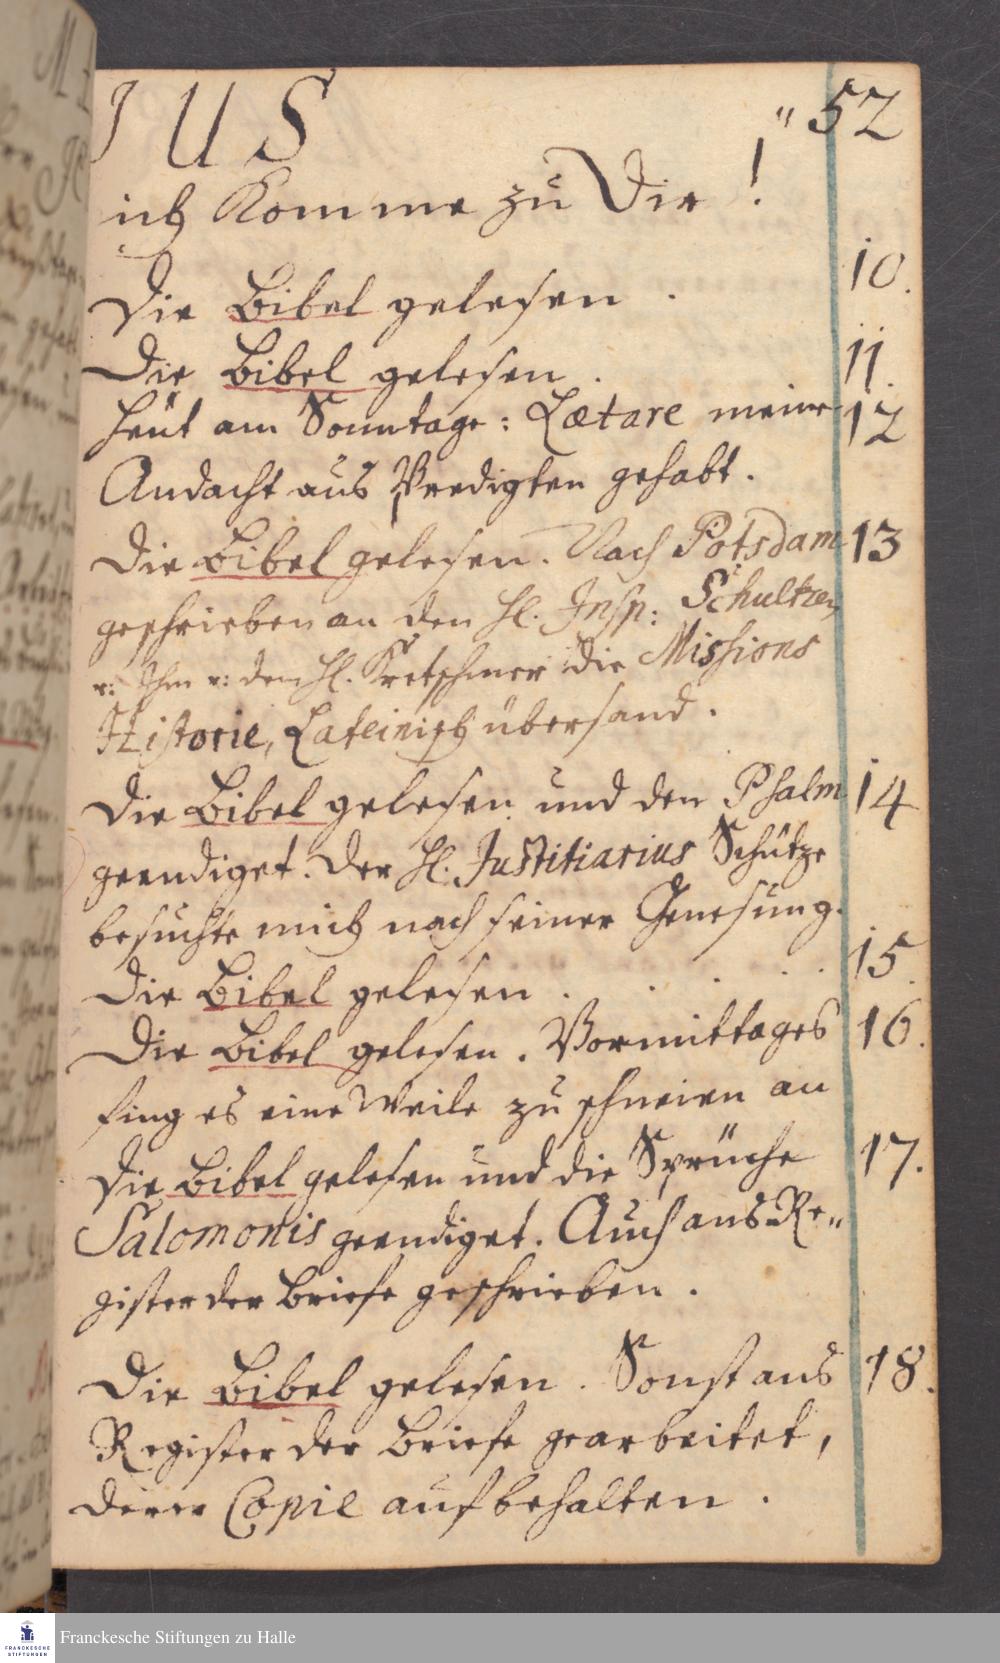 JUS " 52
ich Komme zu Dir !
Die Bibel gelesen . 10.
Die Bibel gelesen . 11.
heut am Sonntage: Lætare meine 12
Andacht aus Predigten gehabt.
Die Bibel gelesen. Nach Potsdam 13
geschrieben an den H. Insp: Schultzen,
v: Ihm v: dem H. Kretschmer die Missions
Historie, Lateinisch übersand.
Die Bibel gelesen und den Psalm 14
geendiget. Der H. Justitiarius Schütze
besuchte mich nach seiner Genesung.
Die Bibel gelesen . . . . . 15.
Die Bibel gelesen. Vormittages 16.
fing es eine Weile zu schneien an
Die Bibel gelesen und die Sprüche 17.
Salomonis geendiget. Auch ans Re„
gister der Briefe geschrieben.
Die Bibel gelesen. Sonst ans 18.
Register der Briefe gearbeitet,
derer Copie aufbehalten.
FRANCKESCHE STIFTUNGEN
Franckesche Stiftungen zu Halle